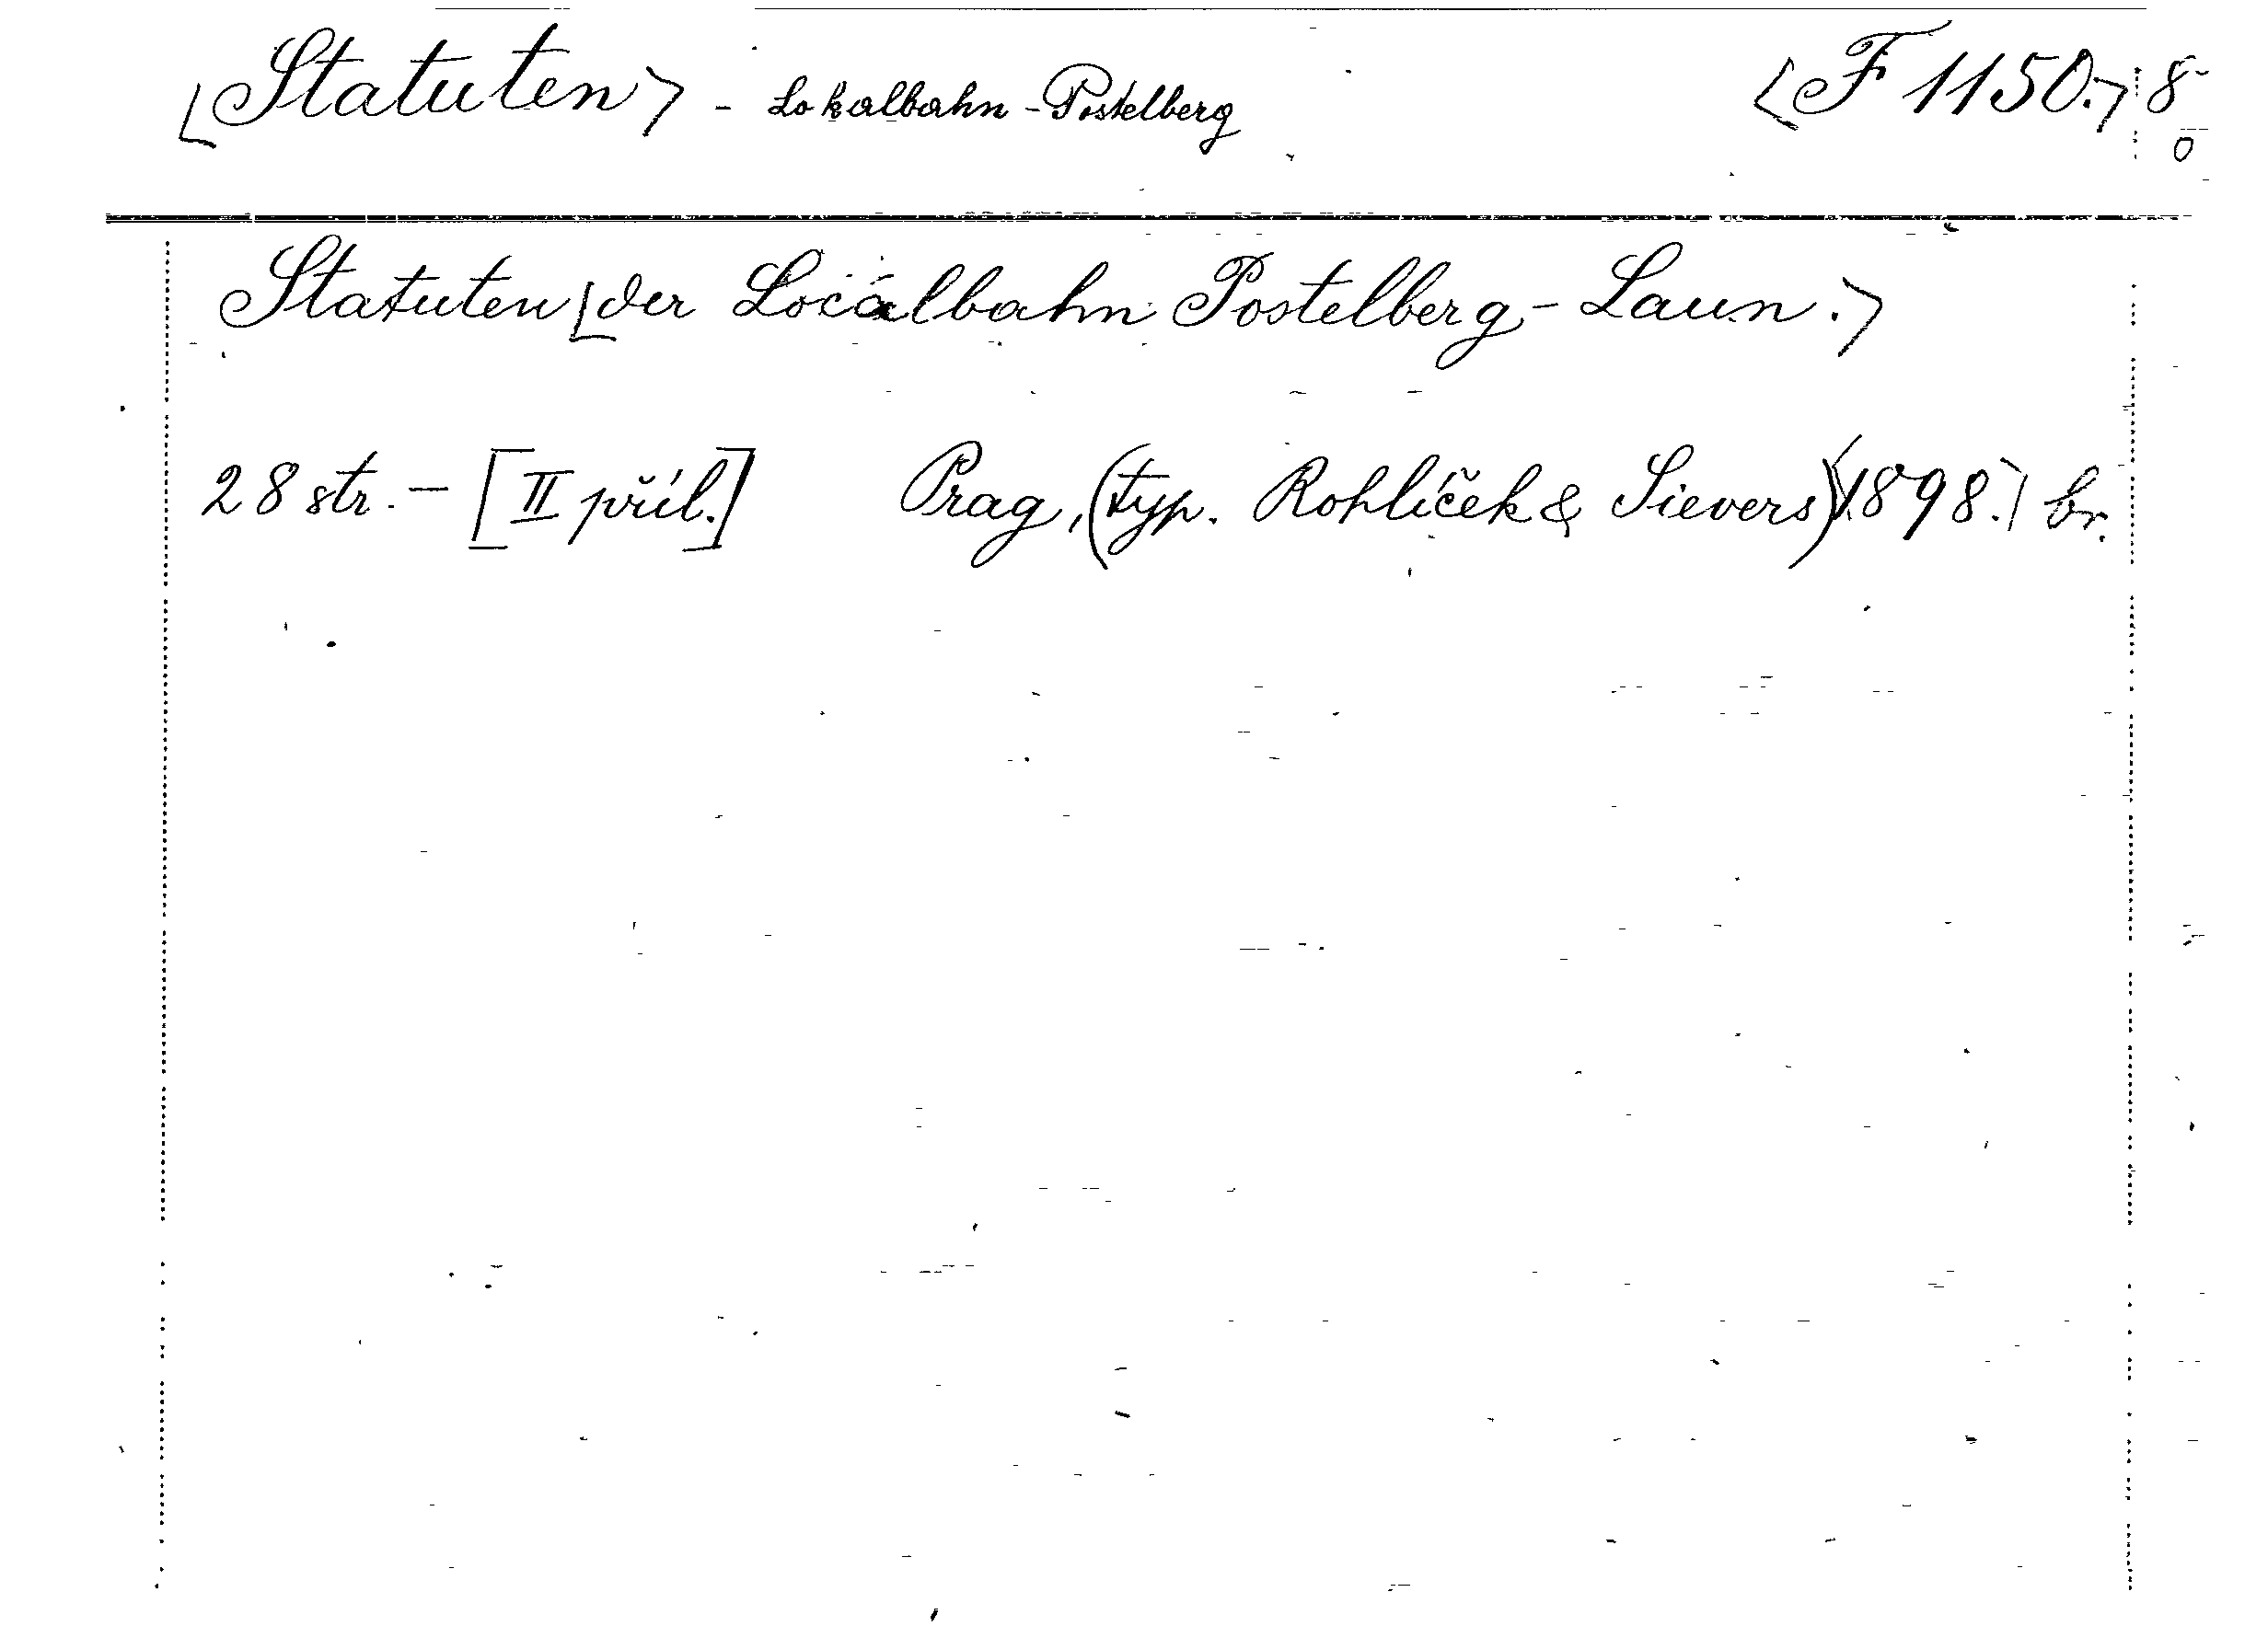 [Statuten] - Lokalbahn - Postelberg [F 1150.] 8
0
Statuten [der Localbahn Postelberg - Laun.]
28 str. - [II příl.] Prag, (typ. Rohlíček & Sievers) (1898.) br.